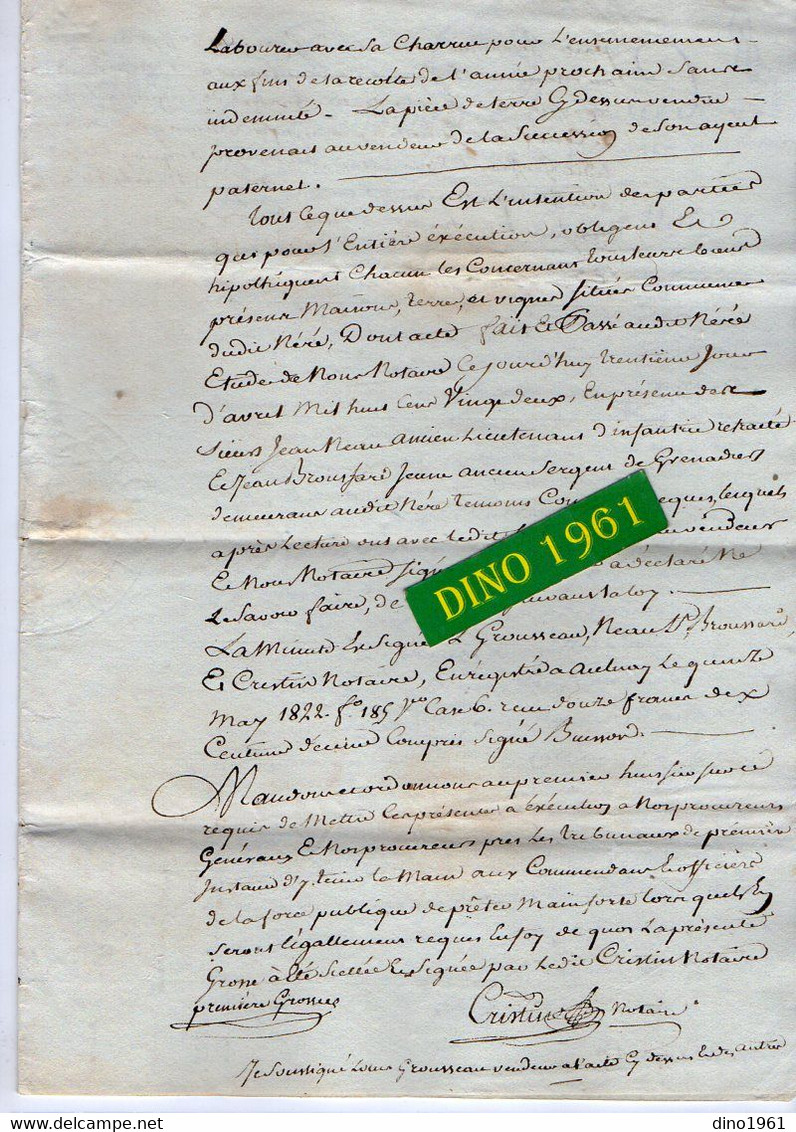 Labourer avec sa Charrue pour L'ensemencement
aux fins de la recolte de l'année prochaine Sans
indemnité. La pièce de terre Cy dessus vendue
provenait au vendeur de la Succession de son ayeul
paternel.
Tout ce que dessus Est L'intention des parties
qui pour L'Entière éxécution, obligent Et
hipothéquent Chacun les Concernant tous leurs biens
présents Maisons, terres, et vignes situées Communes
dudit Néré, Dont acte fait Et Passé audit Néré
Etude de Nous Notaire Ce jourd'huy trentième Jour
d'avril Mil huit Cent Vingt deux, En présence des
Sieurs Jean Neau ancien Lieutenant d'infantrie retraité
Et Jean Broussard Jeune ancien Sergent de Grenadiers
demeurant audit Néré temoins requis, lesquels
après Lecture ont avec ledit vendeur
Et Nous Notaire signé a déclaré Ne
Le Savoir faire, de suivant la loy.
La Minute Est Signée L. Grousseau, Neau, Jn. Broussard,
Et Cristin Notaire, Enregistré a Aulnay Le quinze
May 1822. fo. 185 Vo. Case 6. reçu douze francs dix
Centimes décime Compris Signé Buisson.
Mandons et ordonnons au premier huissier sur ce
requis de Mettre Ces présentes a éxécution a Nos procureurs
Généraux Et Nos procureurs près Les Tribunaux de première
Instance d'y tenir la Main aux Commandans Et officiers
de la force publique de prêter Main forte lorsqu'ils En
seront légallement requis En foy de quoi La présente
Grosse a Eté Scellée Et Signée par Ledit Cristin Notaire
première Grosse
Cristin Notaire
Je Soussigné Louis Grousseau vendeur a l'acte Cy dessus Et des autres
DINO 1961
dino1961